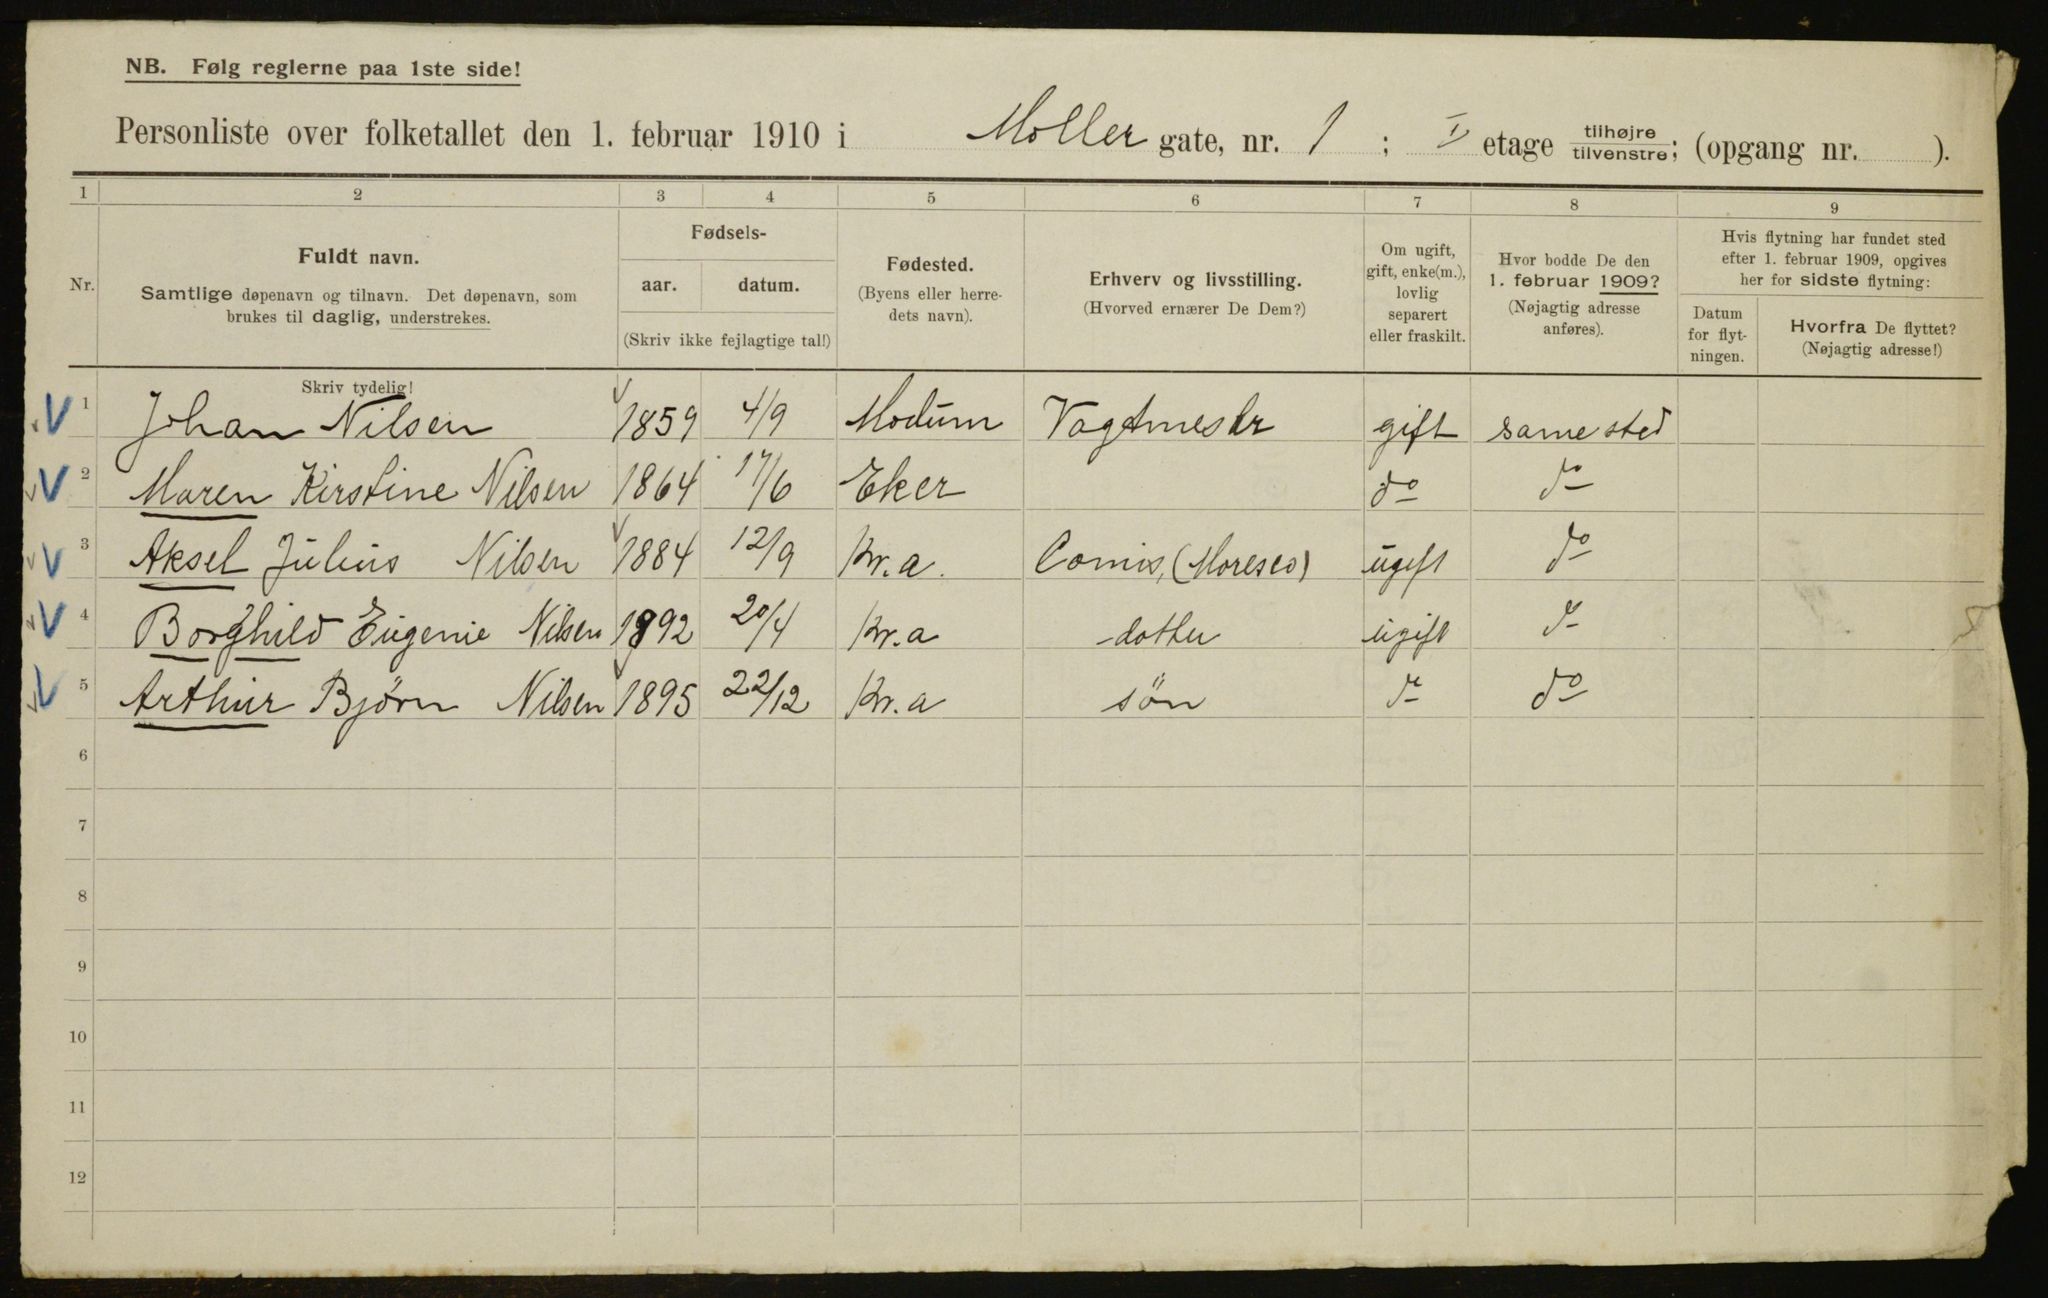 NB. Følg reglerne paa 1ste side!
Personliste over folketallet den 1. februar 1910 i Moller gate, nr. 1 ; etage tilhøjre/tilvenstre; (opgang nr. ).
1 2 3 4 5 6 7 8 9
Nr.
Fuldt navn.
Samtlige døpenavn og tilnavn. Det døpenavn, som
brukes til daglig, understrekes.
Fødsels-
aar. datum.
(Skriv ikke fejlagtige tal!)
Fødested.
(Byens eller herre-
dets navn).
Erhverv og livsstilling.
(Hvorved ernærer De Dem?)
Om ugift,
gift, enke(m.),
lovlig
separert
eller fraskilt.
Hvor bodde De den
1. februar 1909?
(Nøjagtig adresse
anføres).
Hvis flytning har fundet sted
efter 1. februar 1909, opgives
her for sidste flytning:
Datum
for flyt-
ningen.
Hvorfra De flyttet?
(Nøjagtig adresse!)
Skriv tydelig!
1 Johan Nilsen 1859 4/9 Modum Vagtmestr gift samested
2 Maren Kirstine Nilsen 1864 17/6 Eker do do
3 Aksel Julius Nilsen 1884 12/9 Kr.a. Comis, (Moresco) ugift do
4 Borghild Eugenie Nilsen 1892 20/4 Kr.a datter ugift do
5 Arthur Bjørn Nilsen 1895 22/12 Kr.a søn do do
6
7
8
9
10
11
12